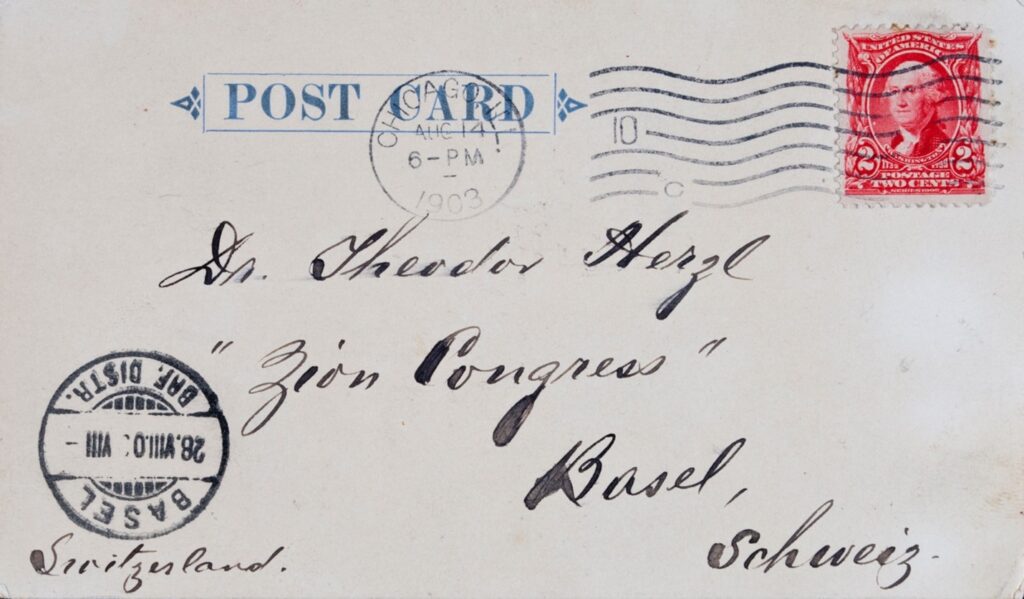 POST CARD
CHICAGO, ILL.
AUG 14
6-PM
1903
10
C
UNITED STATES
OF AMERICA
WASHINGTON
2 2
POSTAGE
TWO CENTS
SERIES 1902
Dr. Theodor Herzl
"Zion Congress"
Basel,
Schweiz.
BRF. DISTR.
28.VIII.0 VIII -
BASEL
Switzerland.